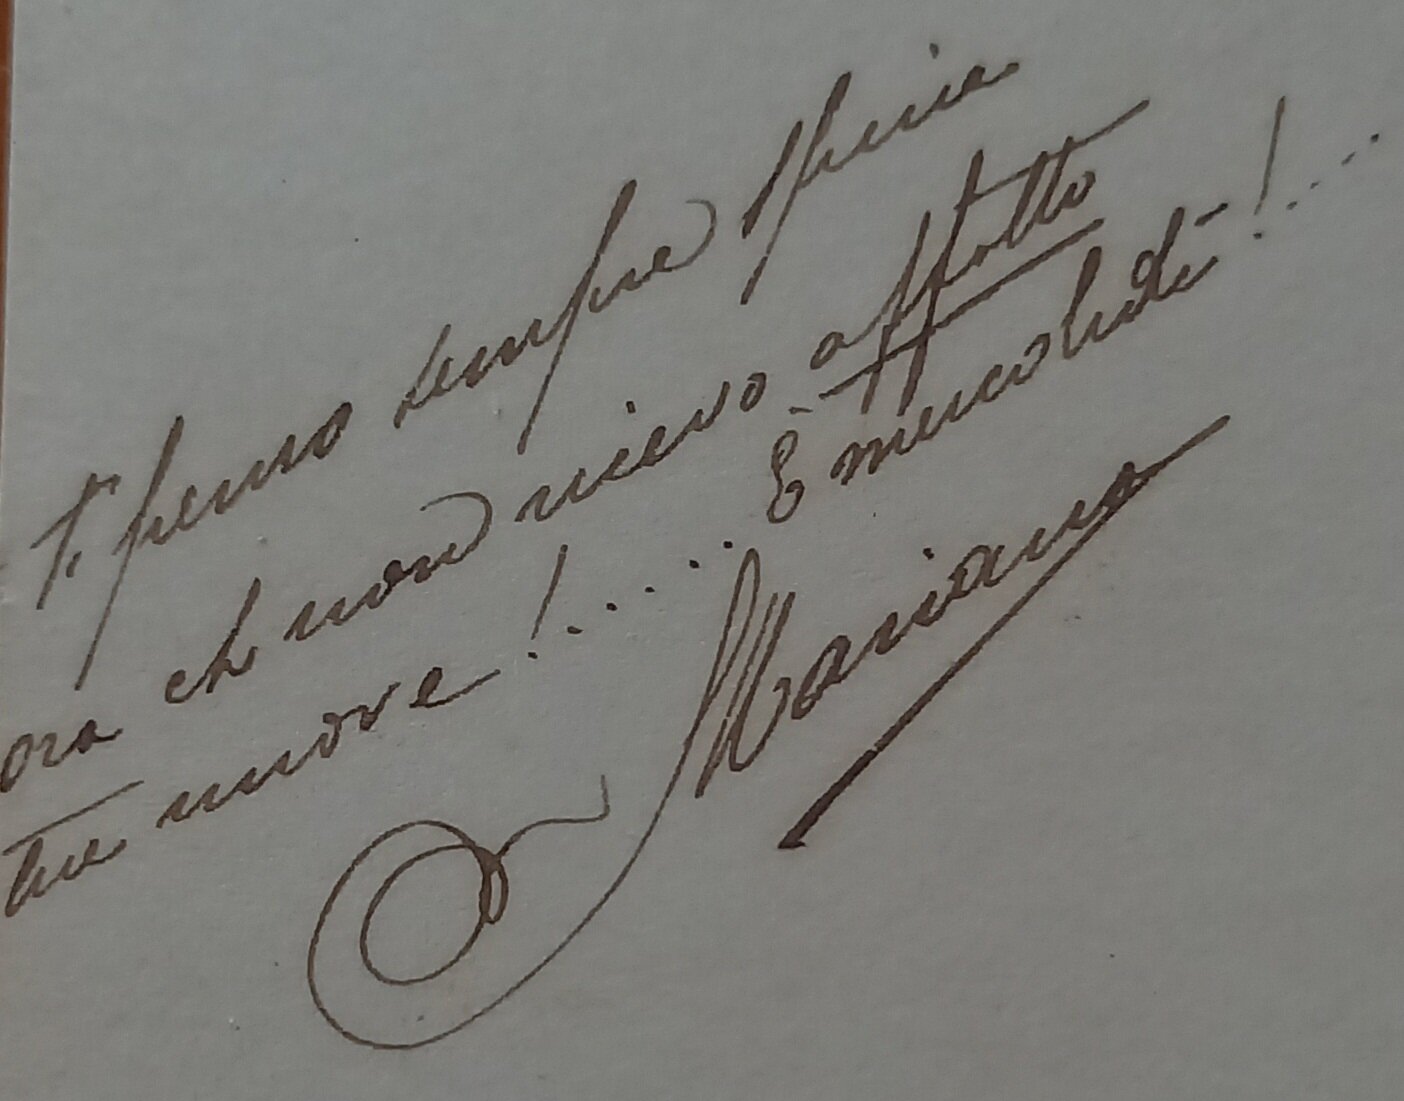 Ti penso sempre specie
ora ch non ricevo affatto
tue nuove!.... È mercoledì!....
Mariano